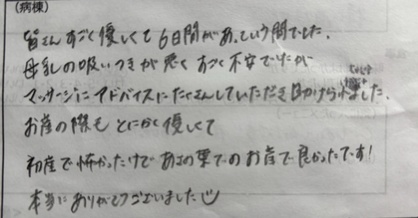 (病棟)
皆さんすごく優しくて6日間があっという間でした。
母乳の吸いつきが悪くすごく不安でしたが
マッサージにアドバイスにたくさんしていただき助けられました。
お産の際もとにかく優しくて
初産で怖かったけどあさの里でのお産で良かったです!
本当にありがとうございました